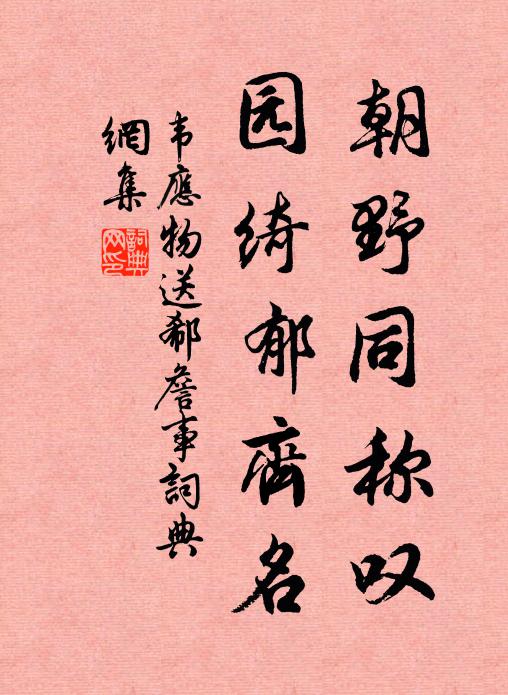 朝野同称叹
园绮郁齊名
韦應物送郗詹事詞典
網集
詞典
网印